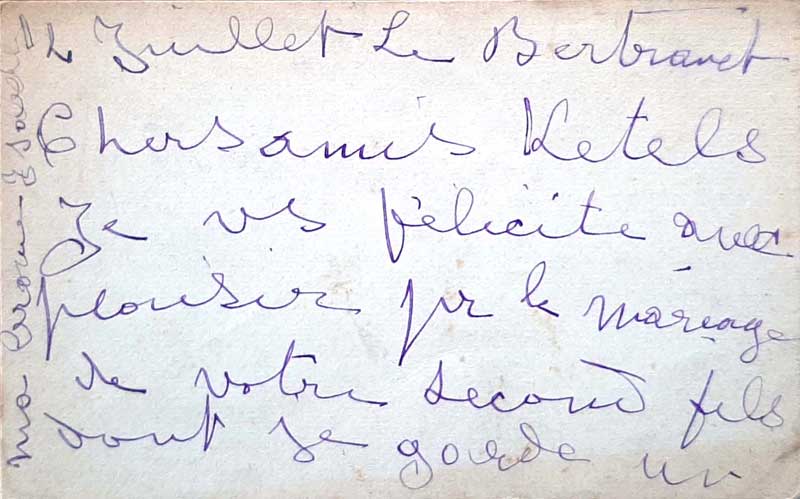 2 Juillet Le Bertranet
Chers amis Ketels
Je vs félicite avec
plaisir pr le mariage
de votre second fils
dont je garde un